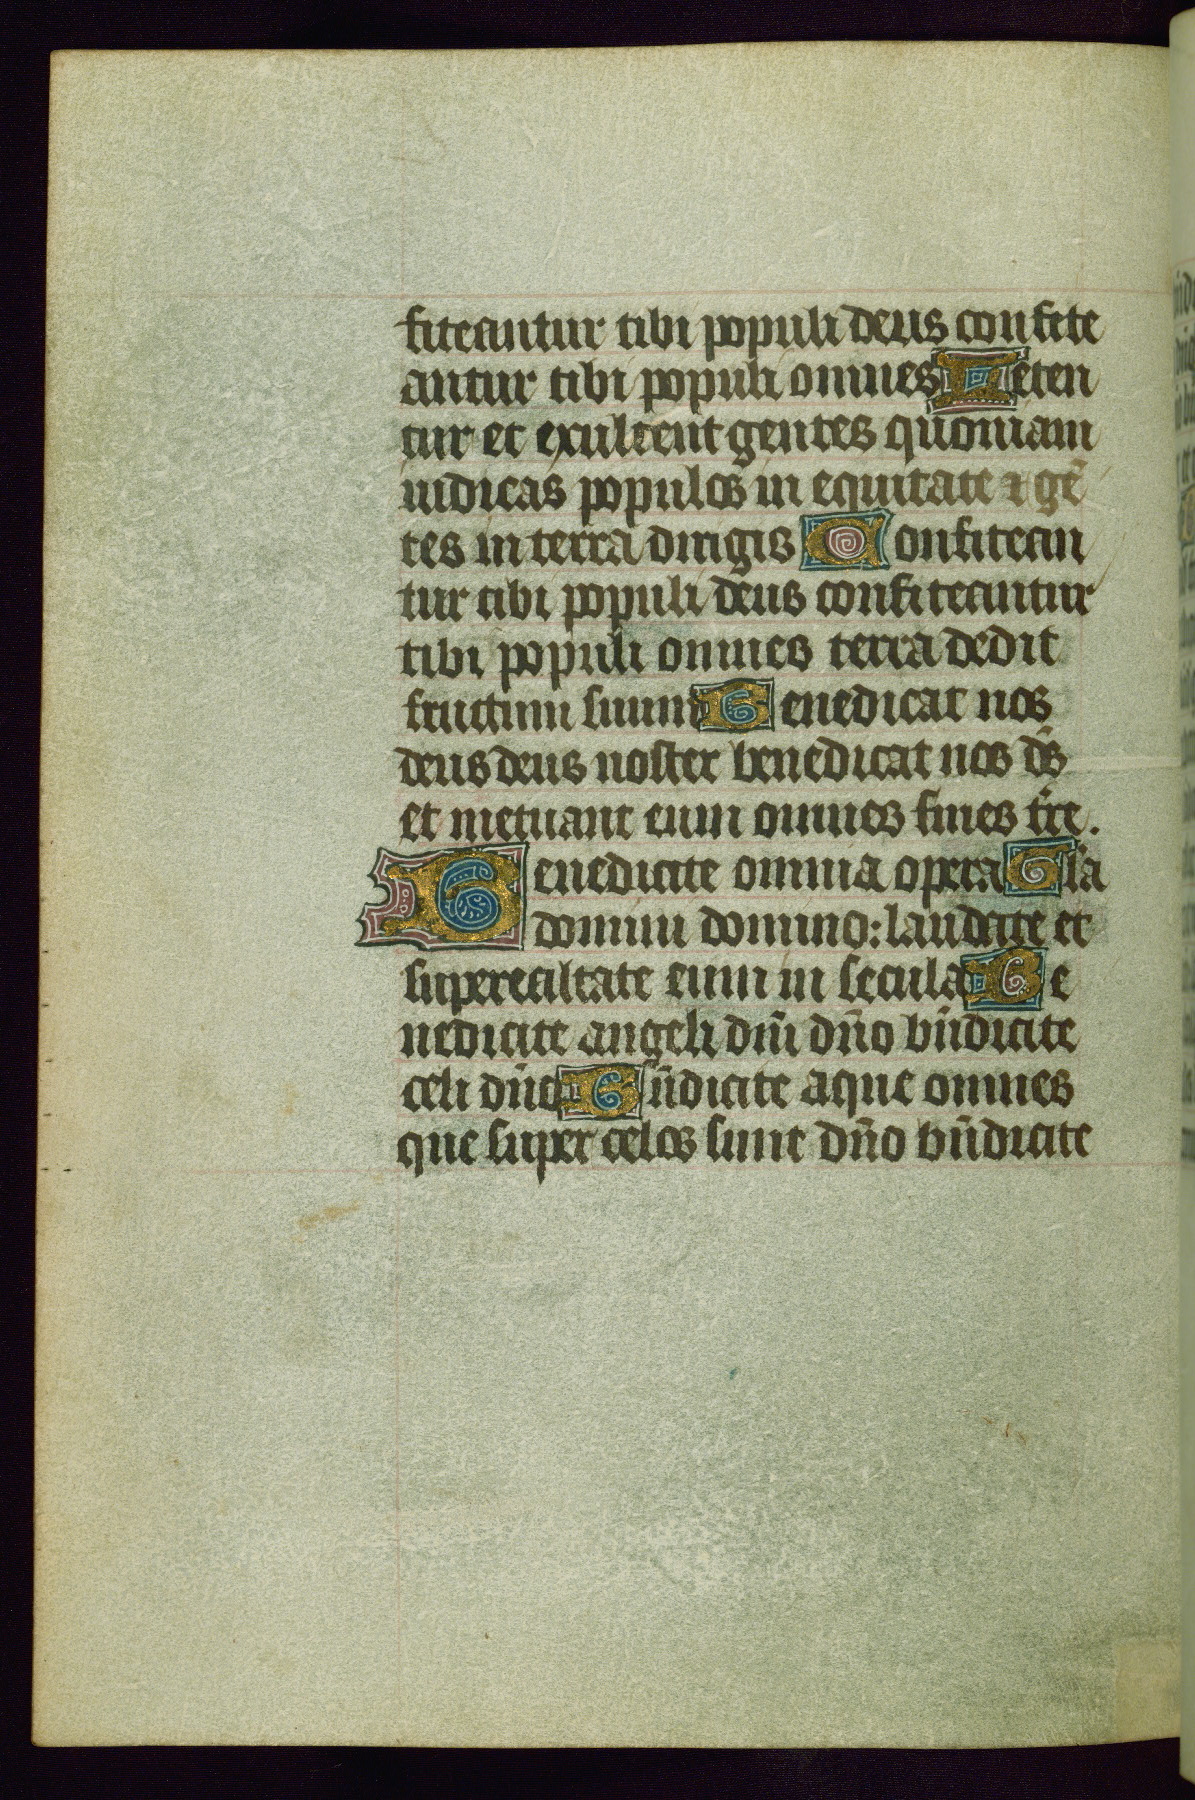 fiteantur tibi populi deus confite
antur tibi populi omnes Leten
tur et exultent gentes quoniam
iudicas populos in equitate ⁊ gē
tes in terra dirigis Confitean
tur tibi populi deus confiteantur
tibi populi omnes terra dedit
fructum suum Benedicat nos
deus deus noster benedicat nos ds̄
et metuant eum omnes fines tr̄e.
Benedicite omnia opera Gl'a
domini domino: laudate et
superexaltate eum in secula Be
nedicite angeli dn̄i dn̄o bn̄dicite
celi dn̄o Bn̄dicite aque omnes
que super celos sunt dn̄o bn̄dicite